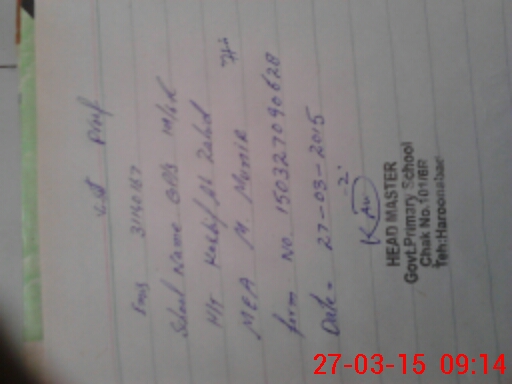 Visit Proof
Emis 31140167
School Name GPS 101/6R
H/T
MEA M. Munir
form No. 150327090628
Date = 27-03-2015
HEAD MASTER
Govt.Primary School
Chak No.101/6R
Teh:Haroonabad
27-03-15 09:14